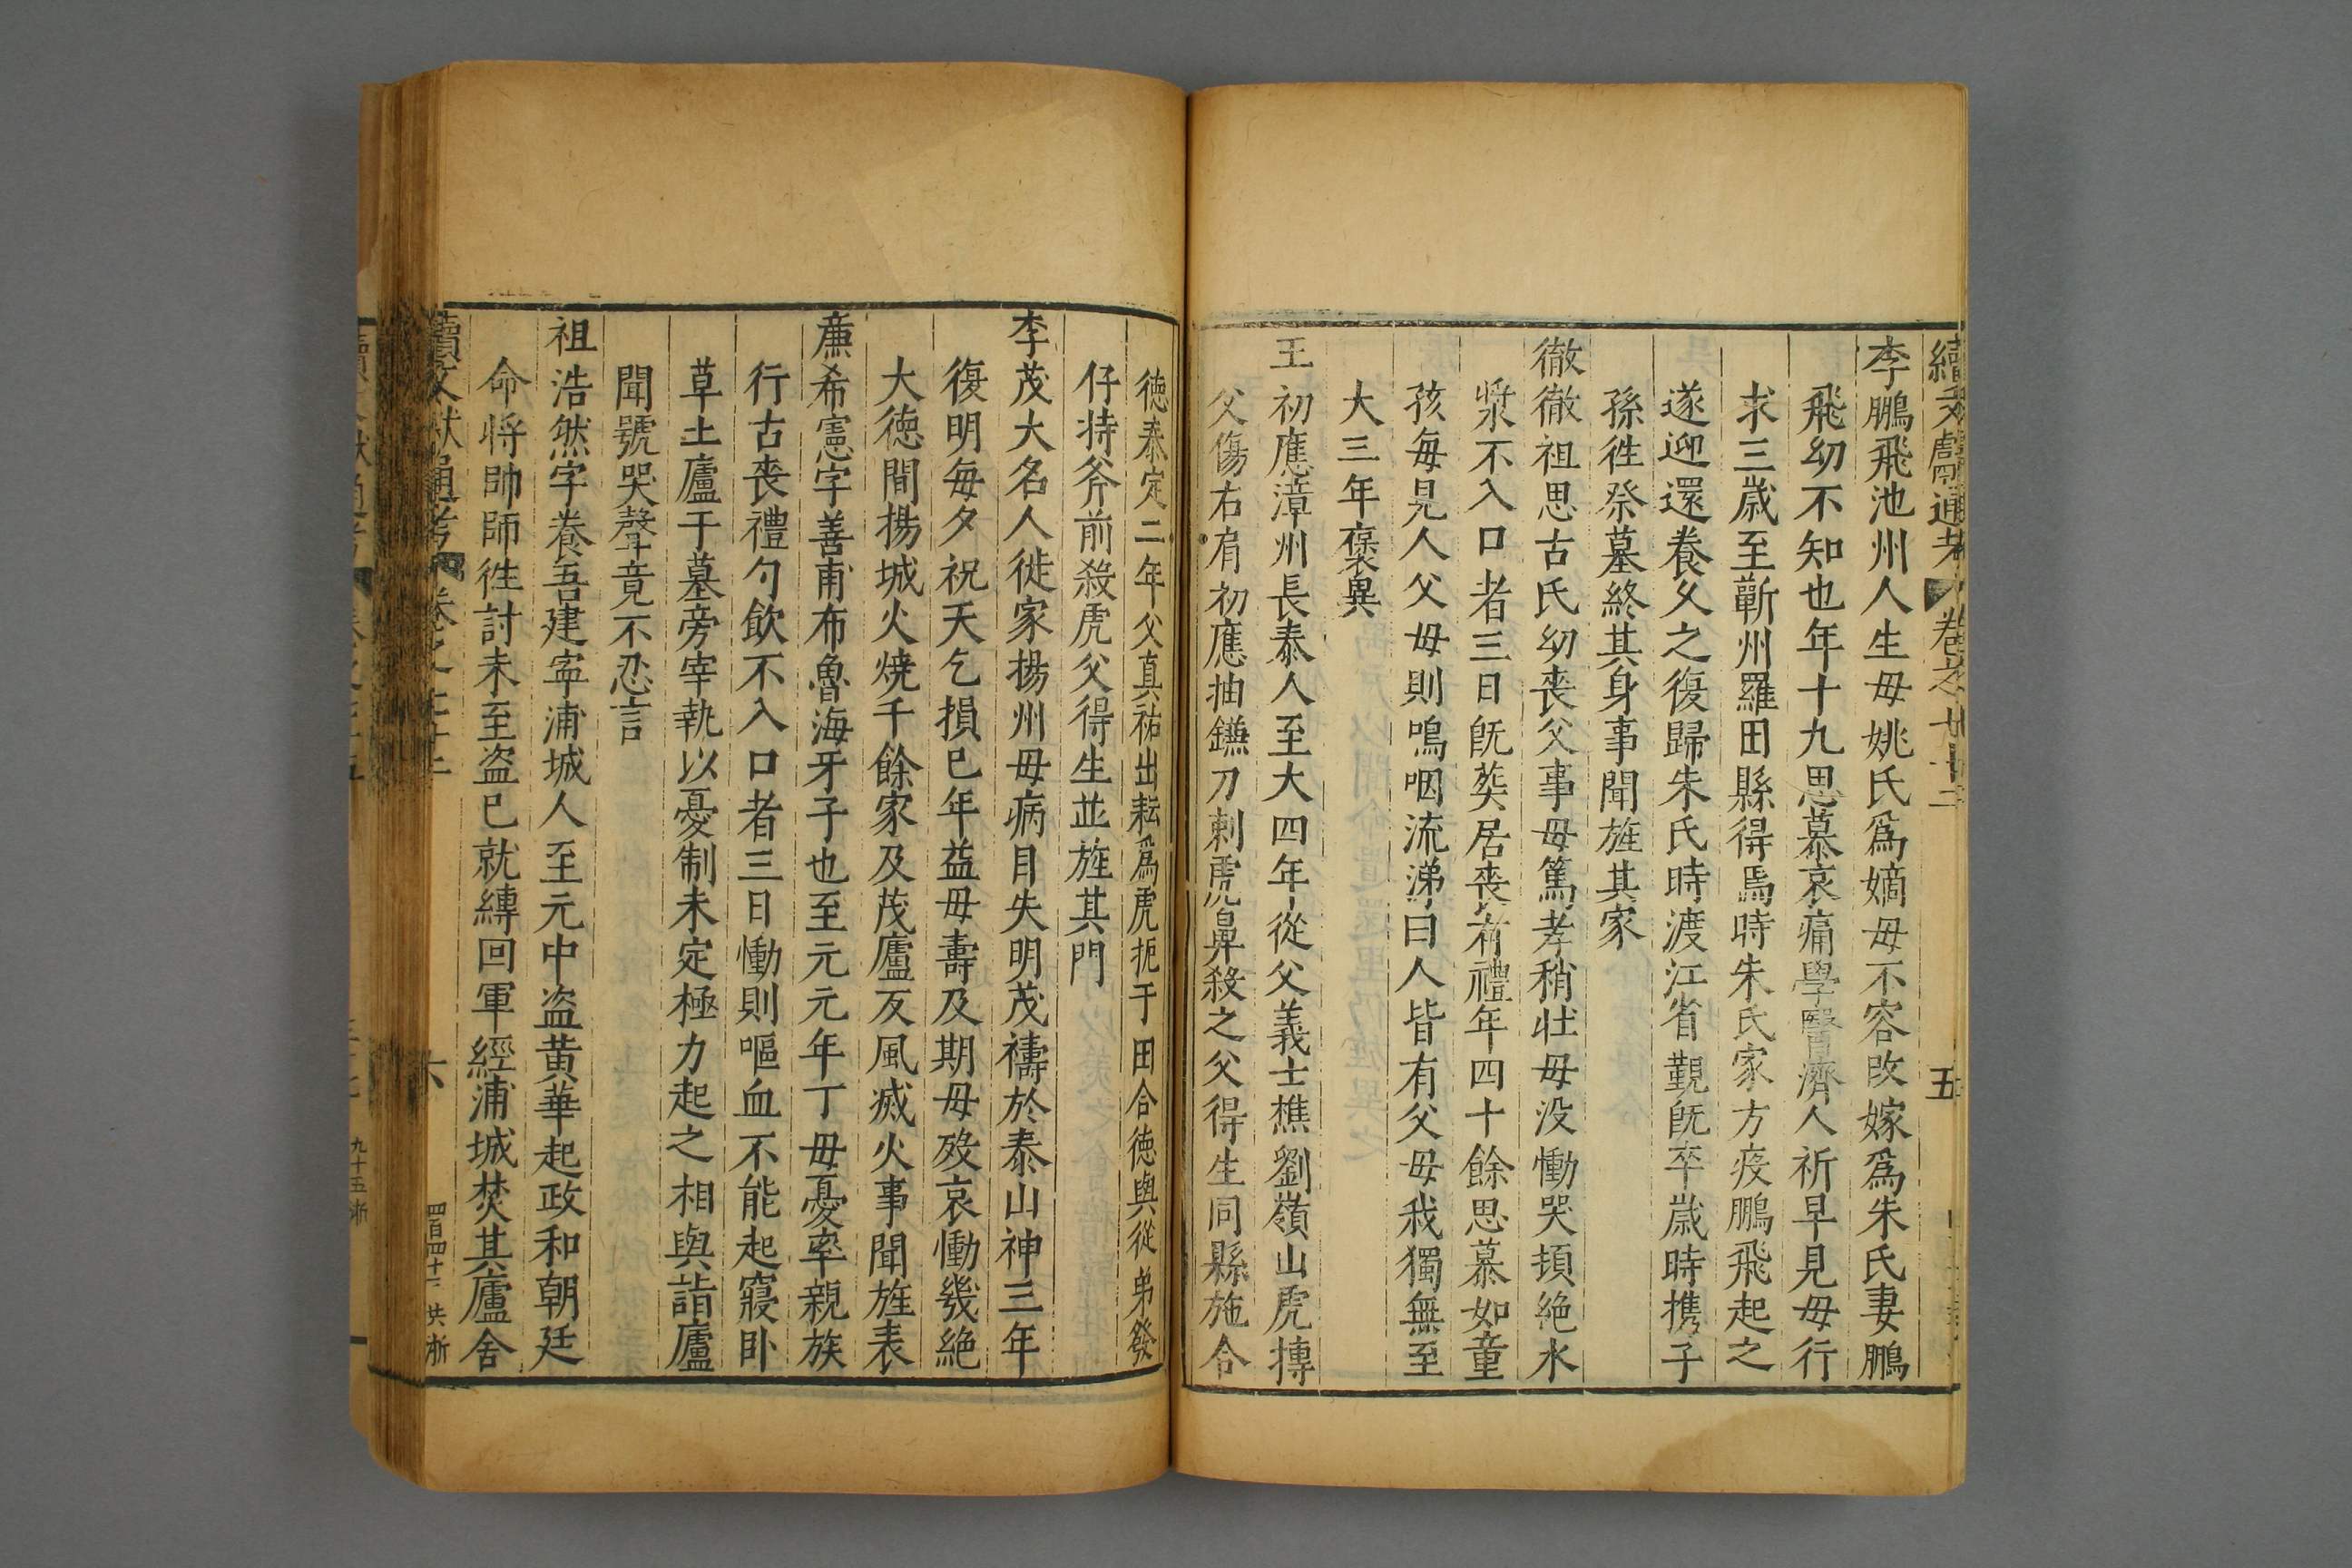 續文獻通考 卷之七十三 五
李鵬飛池州人生母姚氏爲嫡母不容改嫁爲朱氏妻鵬
飛幼不知也年十九思慕哀痛學醫濟人祈早見母行
求三歲至蘄州羅田縣得焉時朱氏家方疫鵬飛起之
遂迎還養久之復歸朱氏時渡江省覲旣卒歲時携子
孫徃祭墓終其身事聞旌其家
徹徹祖思古氏幼丧父事母篤孝稍壯母没慟哭頓絶水
漿不入口者三日旣葬居丧有禮年四十餘思慕如童
孩每見人父母則鳴咽流涕曰人皆有父母我獨無至
大三年褒異
王初應漳州長泰人至大四年從父義士樵劉嶺山虎搏
父傷右肩初應抽鐮刀刺虎鼻殺之父得生同縣施合
德泰定二年父真祐出耘爲虎扼于田合德與從弟發
仔持斧前殺虎父得生並旌其門
李茂大名人徙家揚州母病目失明茂禱於泰山神三年
復明每夕祝天乞損已年益母壽及期母歿哀慟幾絶
大德間揚城火燒千餘家及茂廬反風滅火事聞旌表
亷希憲字善甫布魯海牙子也至元元年丁母憂率親族
行古丧禮勺飲不入口者三日慟則嘔血不能起寢卧
草土廬于墓旁宰執以憂制未定極力起之相與詣廬
聞號哭聲竟不忍言
祖浩然字養吾建寧浦城人至元中盗黄華起政和朝廷
命将帥師徃討未至盗已就縛回軍經浦城焚其廬舍
續文獻通考 卷之七十三 六 四百四十二 共浙
九十五浙